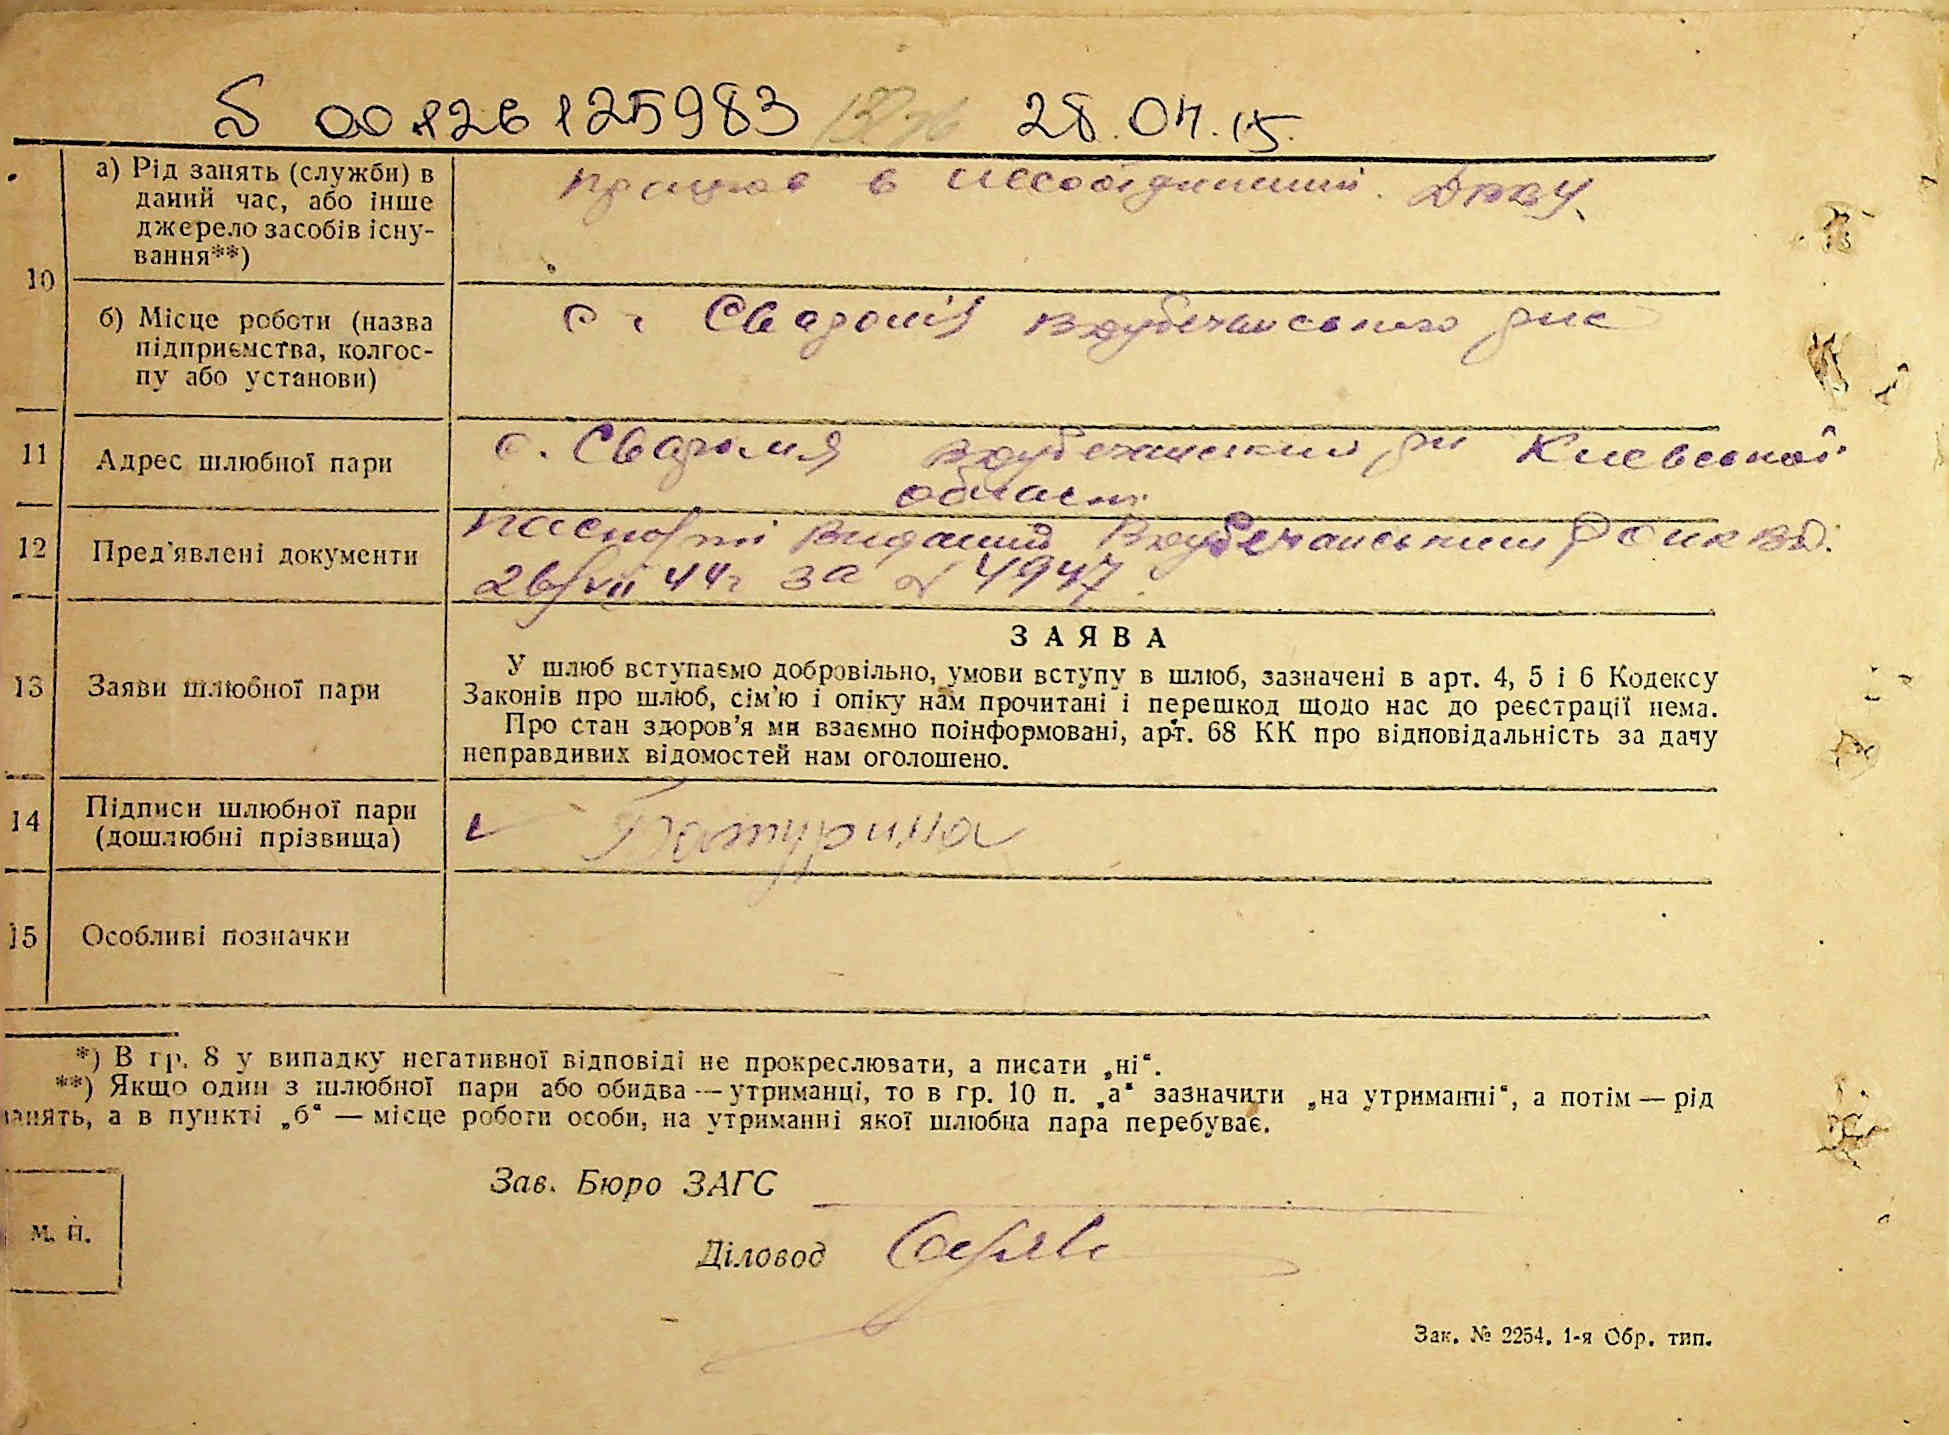 00126125983 28.04.15.
10
а) Рід занять (служби) в
даний час, або інше
джерело засобів існу-
вання**)
працює в
б) Місце роботи (назва
підприємства, колгос-
пу або установи)
с.
11
Адрес шлюбної пари
с. Київської
області
12
Пред'явлені документи
паспорт виданий
26/VII 44г за № 4947.
13
Заяви шлюбної пари
ЗАЯВА
У шлюб вступаємо добровільно, умови вступу в шлюб, зазначені в арт. 4, 5 і 6 Кодексу
Законів про шлюб, сім'ю і опіку нам прочитані і перешкод щодо нас до реєстрації нема.
Про стан здоров'я ми взаємно поінформовані, арт. 68 КК про відповідальність за дачу
неправдивих відомостей нам оголошено.
14
Підписи шлюбної пари
(дошлюбні прізвища)
Батурина
15
Особливі позначки
*) В гр. 8 у випадку негативної відповіді не прокреслювати, а писати „ні“.
**) Якщо один з шлюбної пари або обидва — утриманці, то в гр. 10 п. „а“ зазначити „на утриманні“, а потім — рід
занять, а в пункті „б“ — місце роботи особи, на утриманні якої шлюбна пара перебуває.
Зав. Бюро ЗАГС
М. П.
Діловод
Зак. № 2254. 1-я Обр. тип.